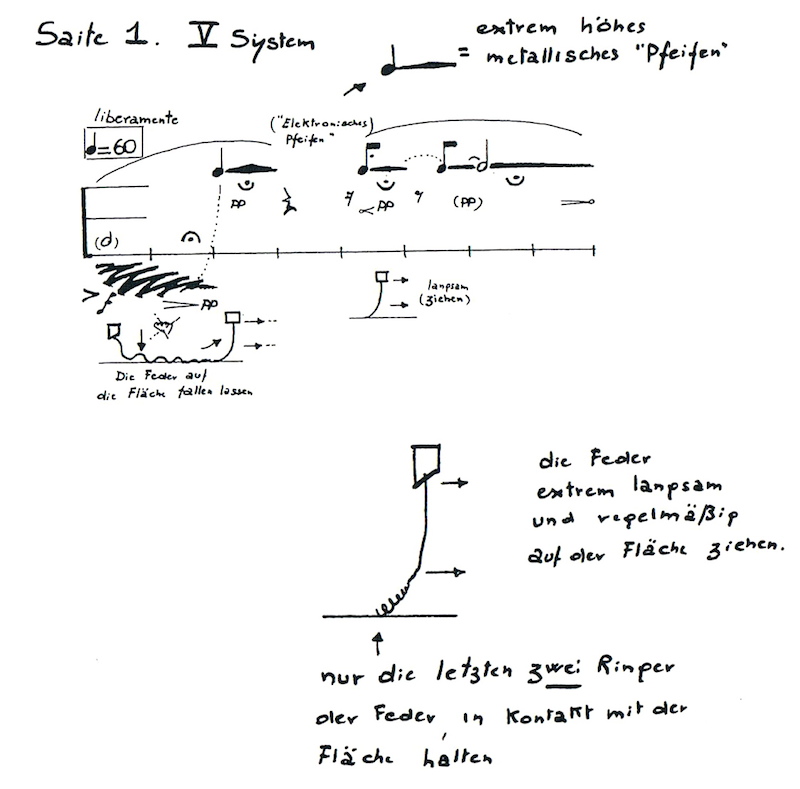 Saite 1. V System
extrem höhes
= metallisches "Pfeifen"
liberamente
♩=60
("Elektronisches)
Pfeifen"
pp
pp
(pp)
(d)
pp
lanpsam
(ziehen)
Die Feder auf
die Fläche fallen lassen
die Feder
extrem lanpsam
und repelmäßip
auf der Fläche ziehen.
nur die letzten zwei Rinper
der Feder in Kontakt mit der
Fläche halten